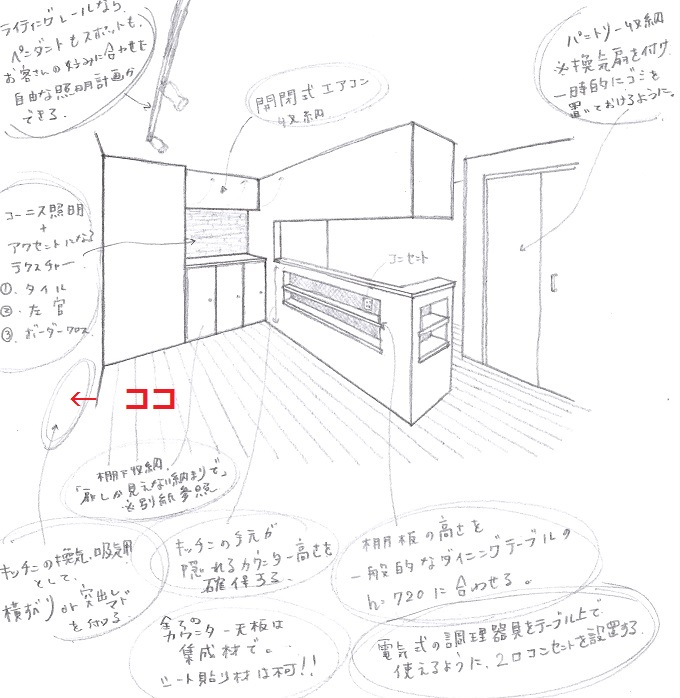 ライティングレールなら、
ペンダントもスポットも、
お客さんの好みに合わせた
自由な照明計画が
できる。
開閉式エアコン
収納
パントリー収納
※換気扇を付け
一時的にゴミを
置いておけるように。
コーニス照明
+
アクセントになる
テクスチャー
①. タイル
②. 左官
③. ボーダークロス
コンセント
← ココ
棚下収納。
「扉しか見えない納まりで」
※別紙参照
キッチンの換気・吸気用
として、
横すべり or 突出し
マド
を付ける
キッチンの手元が
隠れるカウンター高さを
確保する。
棚板の高さを
一般的なダイニングテーブルの
h=720に合わせる。
カウンター天板は
集成材で。
シート貼り材は不可!!
電気式の調理器具をテーブル上で
使えるように、2口コンセントを設置する。